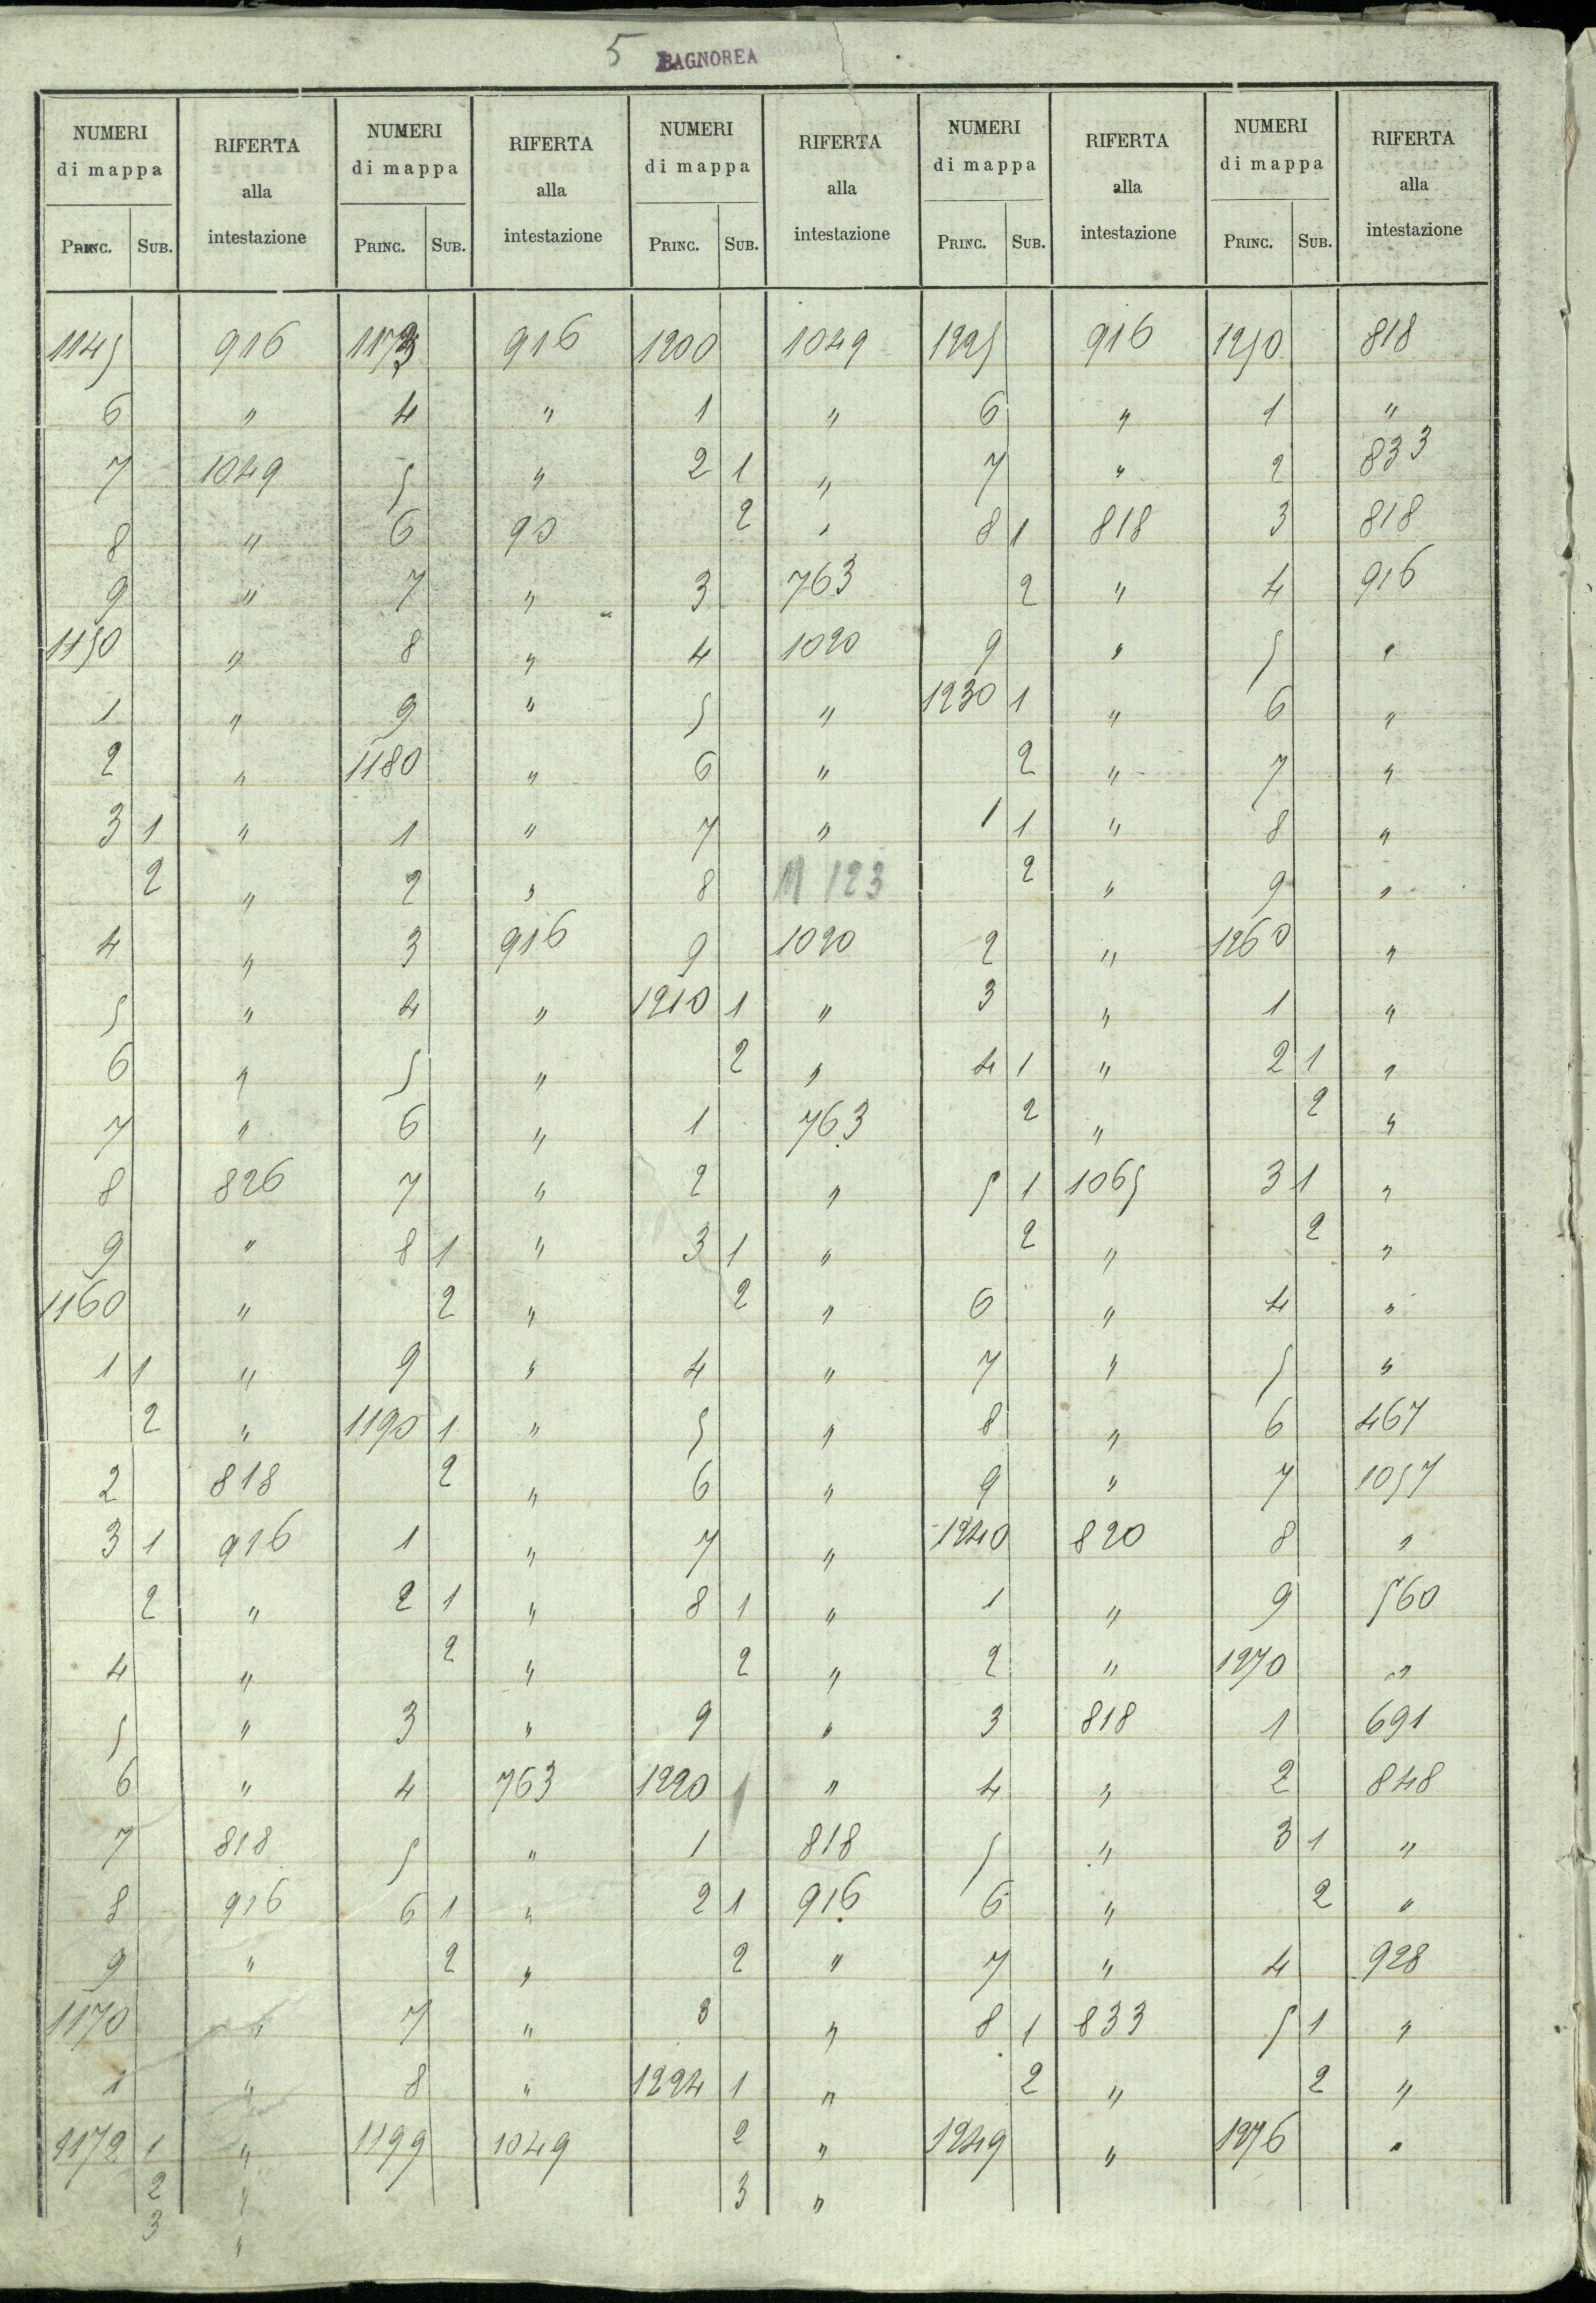 5 BAGNOREA
NUMERI di mappa RIFERTA alla intestazione NUMERI di mappa RIFERTA alla intestazione NUMERI di mappa RIFERTA alla intestazione NUMERI di mappa RIFERTA alla intestazione NUMERI di mappa RIFERTA alla intestazione
PRINC. SUB. PRINC. SUB. PRINC. SUB. PRINC. SUB. PRINC. SUB.
1145 916 1173 916 1200 1049 1225 916 1250 818
6 " 4 " 1 " 6 " 1 "
7 1049 5 " 2 1 " 7 " 2 833
8 " 6 90 2 " 8 1 818 3 818
9 " 7 " 3 763 2 " 4 916
1150 " 8 " 4 1020 9 " 5 "
1 " 9 " 5 " 1230 1 " 6 "
2 " 1180 " 6 " 2 " 7 "
3 1 " 1 " 7 " 1 1 " 8 "
2 " 2 " 8 M 123 2 " 9 "
4 " 3 916 9 1020 2 " 1260 "
5 " 4 " 1210 1 " 3 " 1 "
6 " 5 " 2 " 4 1 " 2 1 "
7 " 6 " 1 763 2 " 2 "
8 826 7 " 2 " 5 1 1065 3 1 "
9 " 8 1 " 3 1 " 2 " 2 "
1160 " 2 " 2 " 6 " 4 "
1 1 " 9 " 4 " 7 " 5 "
2 " 1190 1 " 5 " 8 " 6 467
2 818 2 " 6 " 9 " 7 1057
3 1 916 1 " 7 " 1240 820 8 "
2 " 2 1 " 8 1 " 1 " 9 560
4 " 2 " 2 " 2 " 1270 "
5 " 3 " 9 " 3 818 1 691
6 " 4 763 1220 " 4 " 2 848
7 818 5 " 1 818 5 " 3 1 "
8 916 6 1 " 2 1 916 6 " 2 "
9 " 2 " 2 " 7 " 4 928
1170 " 7 " 3 " 8 1 833 5 1 "
1 " 8 " 1224 1 " 2 " 2 "
1172 1 " 1199 1049 2 " 1249 " 1276 "
2 " 3 "
3 "